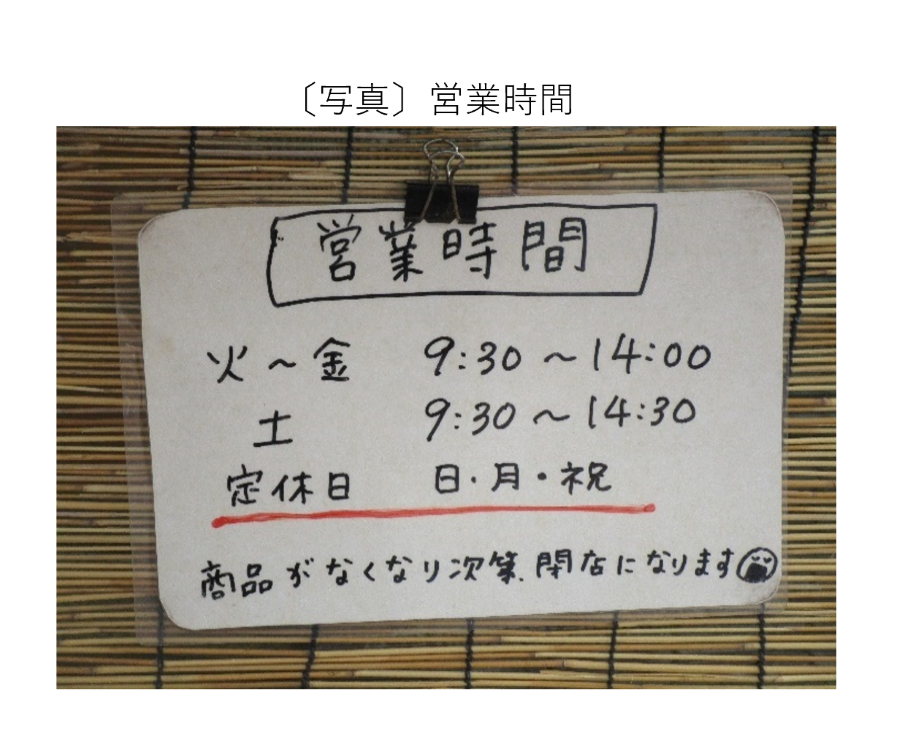 〔写真〕営業時間
営業時間
火～金 9:30～14:00
土 9:30～14:30
定休日 日・月・祝
商品がなくなり次第、閉店になります